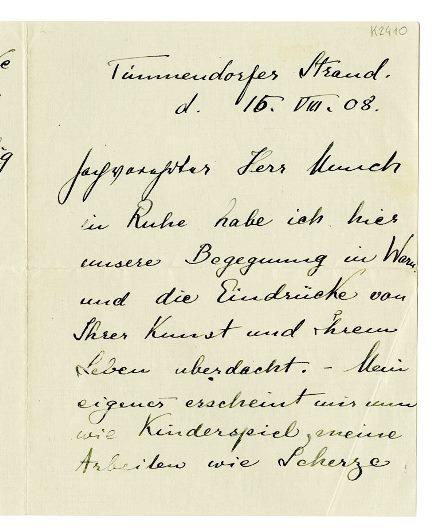 K2410
Timmendorfer Strand.
d. 16. VIII. 08.
Hochverehrter Herr Munch
in Ruhe habe ich hier
unsere Begegnung in Warn.
und die Eindrücke von
Ihrer Kunst und Ihrem
Leben überdacht. - Mein
eigenes erscheint mir nun
wie Kinderspiel, meine
Arbeiten wie Scherze